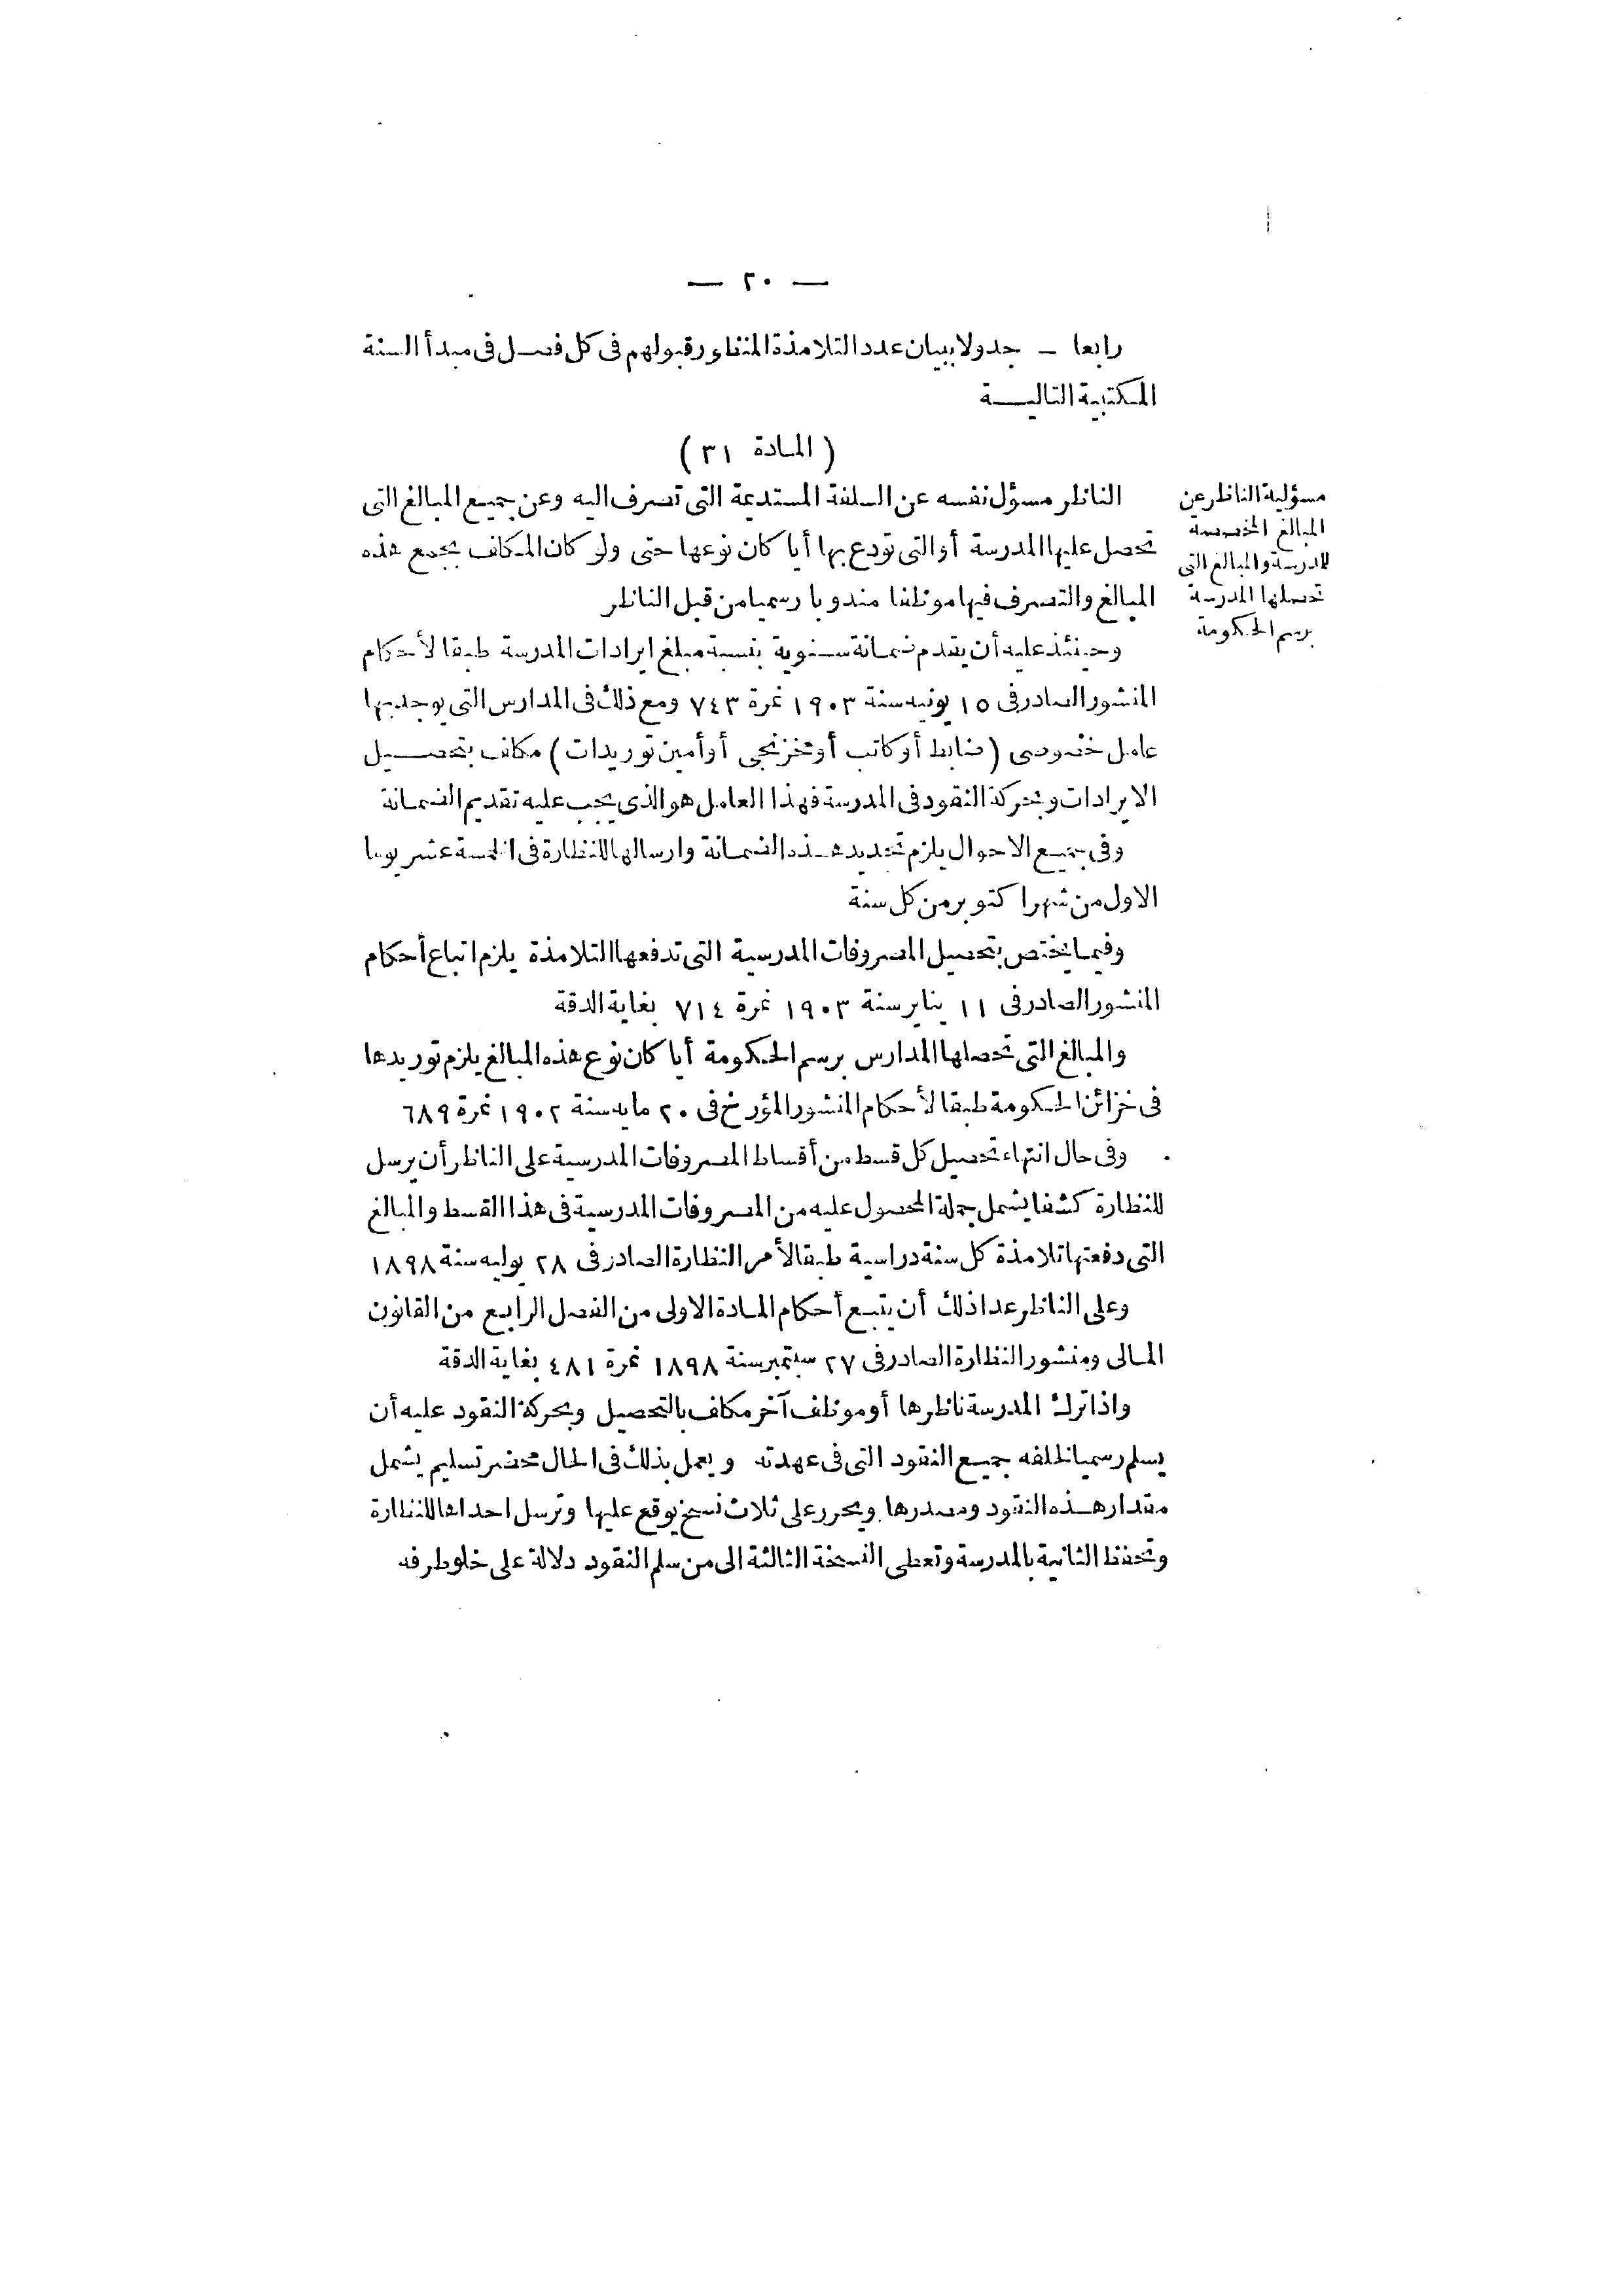 — ٢٠ —
رابعا — جدولا ببيان عدد التلامذة المنظور قبولهم فى كل فصل فى مبدأ السنة
المكتبية التالية
( المادة ٣١ )
مسؤلية الناظر عن
المبالغ المخصصة
للمدرسة والمبالغ التى
تحصلها المدرسة
برسم الحكومة
الناظر مسؤل نفسه عن السلفة المستديمة التى تصرف اليه وعن جميع المبالغ التى
تحصل عليها المدرسة أو التى تودع بها أيا كان نوعها حتى ولو كان المكلف بجمع هذه
المبالغ والتصرف فيها موظفا مندوبا رسميا من قبل الناظر
وحينئذ عليه أن يقدم ضمانة سنوية بنسبة مبلغ ايرادات المدرسة طبقا لأحكام
المنشور الصادر فى ١٥ يونيه سنة ١٩٠٣ نمرة ٧٤٣ ومع ذلك فى المدارس التى يوجد بها
عامل خصوصى (ضابط أو كاتب أو مخزنجى أو أمين توريدات) مكلف بتحصيل
الايرادات وبحركة النقود فى المدرسة فهذا العامل هو الذى يجب عليه تقديم الضمانة
وفى جميع الاحوال يلزم تجديد هذه الضمانة وارسالها للنظارة فى الخمسة عشر يوما
الاول من شهر اكتوبر من كل سنة
وفيما يختص بتحصيل المصروفات المدرسية التى تدفعها التلامذة يلزم اتباع أحكام
المنشور الصادر فى ١١ يناير سنة ١٩٠٣ نمرة ٧١٤ بغاية الدقة
والمبالغ التى تحصلها المدارس برسم الحكومة أيا كان نوع هذه المبالغ يلزم توريدها
فى خزائن الحكومة طبقا لأحكام المنشور المؤرخ فى ٢٠ مايه سنة ١٩٠٢ نمرة ٦٨٩
وفى حال انتهاء تحصيل كل قسط من أقساط المصروفات المدرسية على الناظر أن يرسل
للنظارة كشفا يشمل جملة المحصول عليه من المصروفات المدرسية فى هذا القسط والمبالغ
التى دفعتها تلامذة كل سنة دراسية طبقا لأمر النظارة الصادر فى ٢٨ يوليه سنة ١٨٩٨
وعلى الناظر عدا ذلك أن يتبع أحكام المادة الاولى من الفصل الرابع من القانون
المالى ومنشور النظارة الصادر فى ٢٧ سبتمبر سنة ١٨٩٨ نمرة ٤٨١ بغاية الدقة
واذا ترك المدرسة ناظرها أو موظف آخر مكلف بالتحصيل وبحركة النقود عليه أن
يسلم رسميا لخلفه جميع النقود التى فى عهدته ويعمل بذلك فى الحال محضر تسليم يشمل
مقدار هذه النقود ومصدرها ويحرر على ثلاث نسخ يوقع عليها وترسل احداها للنظارة
وتحفظ الثانية بالمدرسة وتعطى النسخة الثالثة الى من سلم النقود دلالة على خلو طرفه